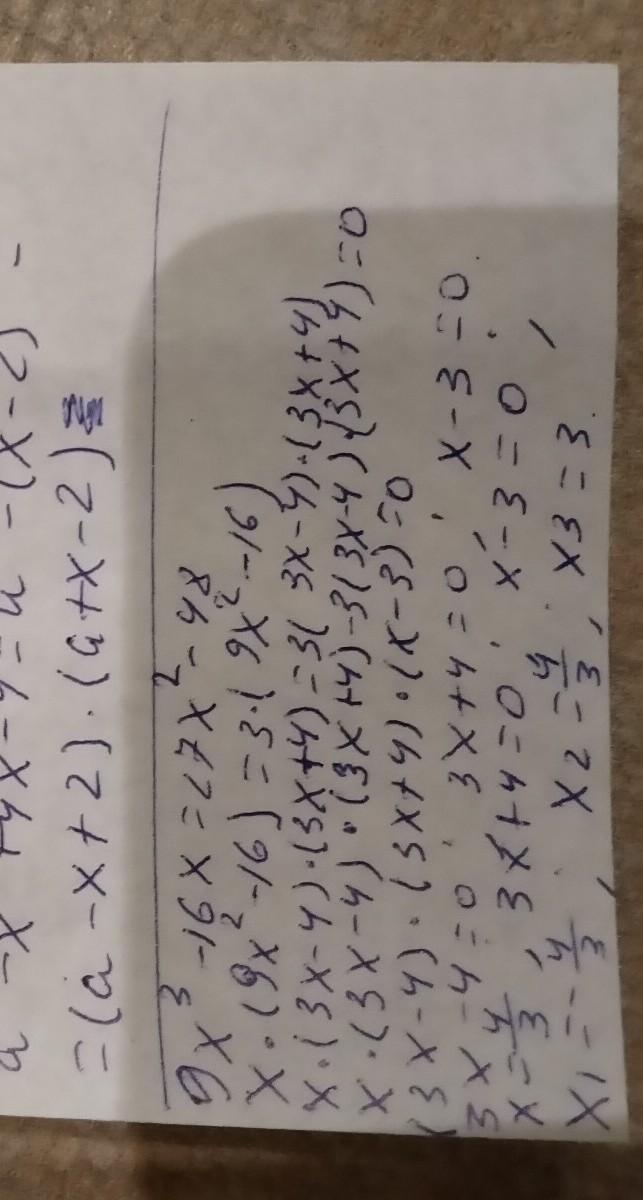 = (a - x + 2) · (a + x - 2)
9x³ - 16x = 27x² - 48
x · (9x² - 16) = 3 · (9x² - 16)
x · (3x - 4) · (3x + 4) = 3(3x - 4) · (3x + 4)
x · (3x - 4) · (3x + 4) - 3(3x - 4) · (3x + 4) = 0
(3x - 4) · (3x + 4) · (x - 3) = 0
3x - 4 = 0, 3x + 4 = 0, x - 3 = 0.
x = 4/3, 3x + 4 = 0, x - 3 = 0,
x1 = - 4/3, x2 = 4/3, x3 = 3.